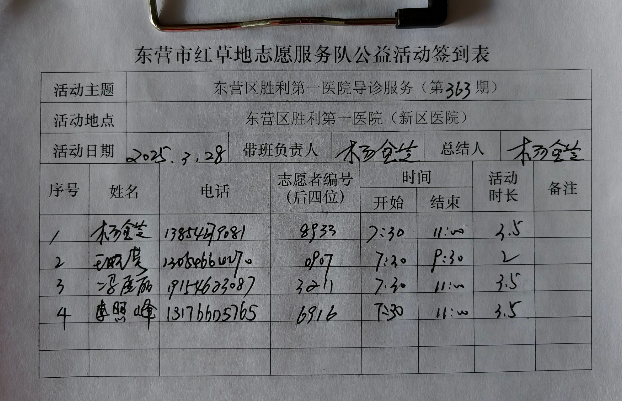 东营市红草地志愿服务队公益活动签到表
活动主题 东营区胜利第一医院导诊服务（第363期）
活动地点 东营区胜利第一医院（新区医院）
活动日期 2025.3.28 带班负责人 杨金芝 总结人 杨金芝
序号 姓名 电话 志愿者编号（后四位） 时间 开始 结束 活动时长 备注
1 杨金芝 8933 7:30 11:00 3.5
2 0907 7:30 9:30 2
3 19154623087 3211 7:30 11:00 3.5
4 李照峰 13176605765 6916 7:30 11:00 3.5